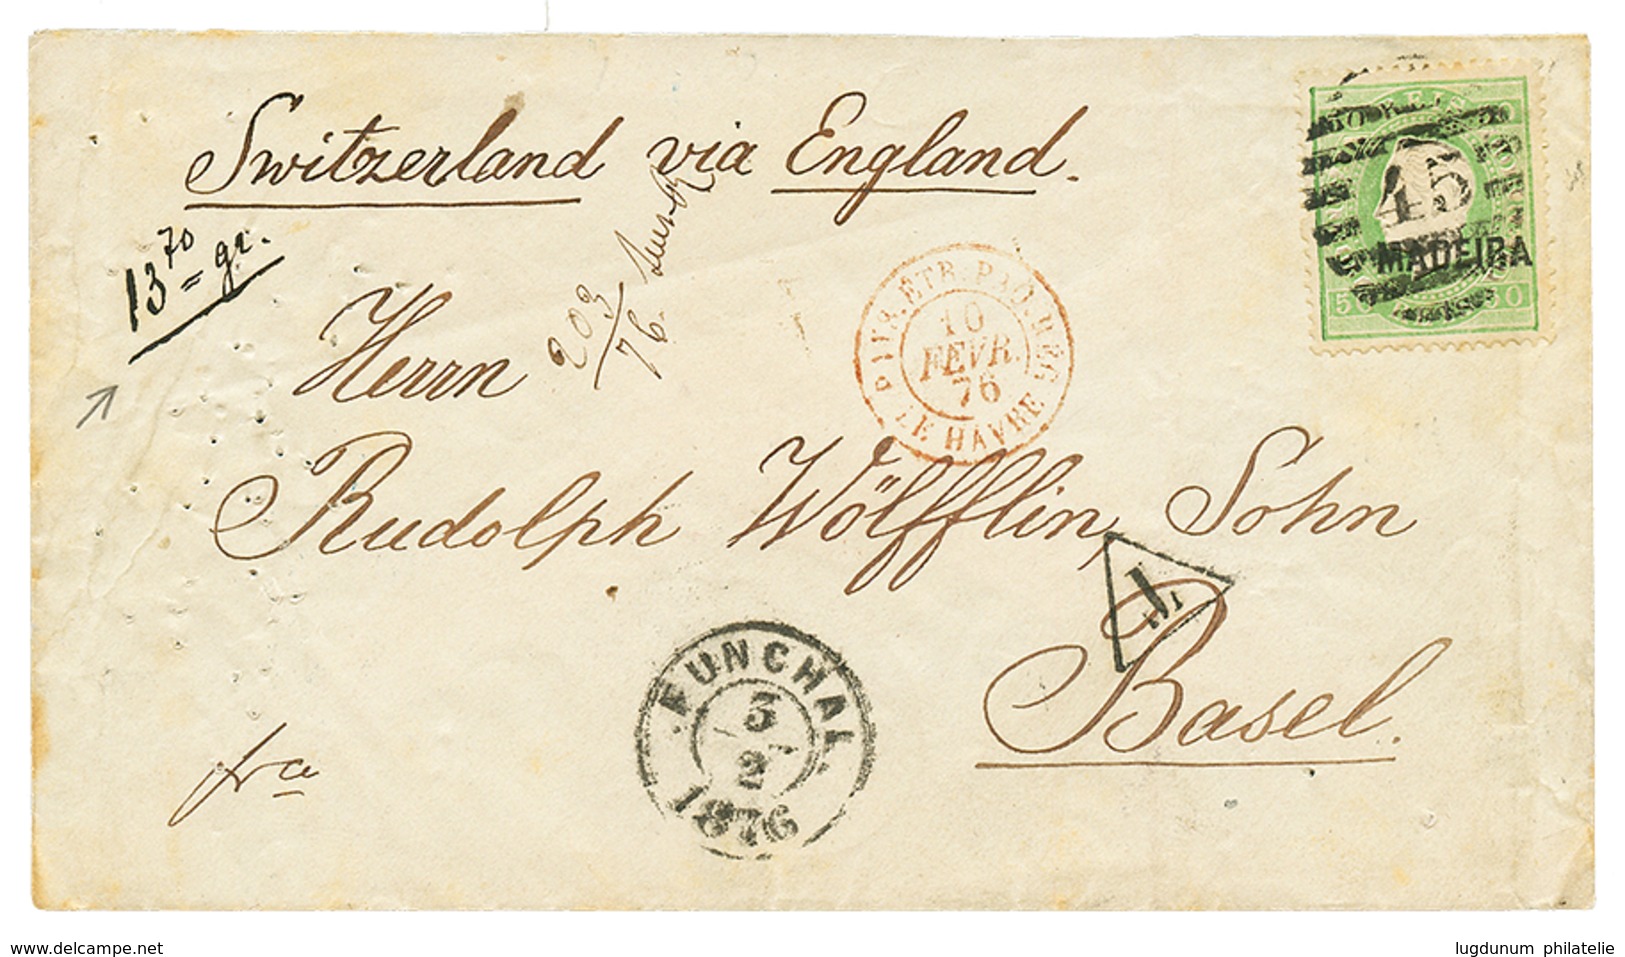 Switzerland via England.
13 70 = gr.
Herrn
203/76.
Rudolph Wölfflin, Sohn
Basel.
fra
PAYS. ÉTR. PAQ. RÉG
10
FEVR.
76
LE HAVRE
FUNCHAL
2
1876
1
50 REIS
45
MADEIRA
50
www.delcampe.net
lugdunum philatelie